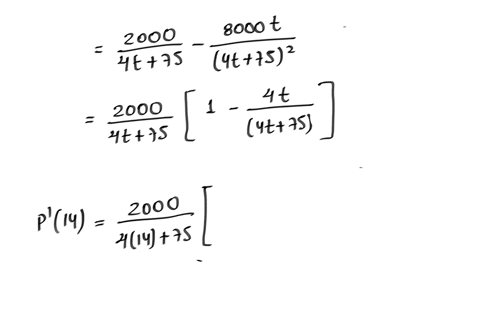 = 2000/(4t+75) - 8000t/(4t+75)²
= 2000/(4t+75) [ 1 - 4t/(4t+75) ]
P'(14) = 2000/(4(14)+75) [